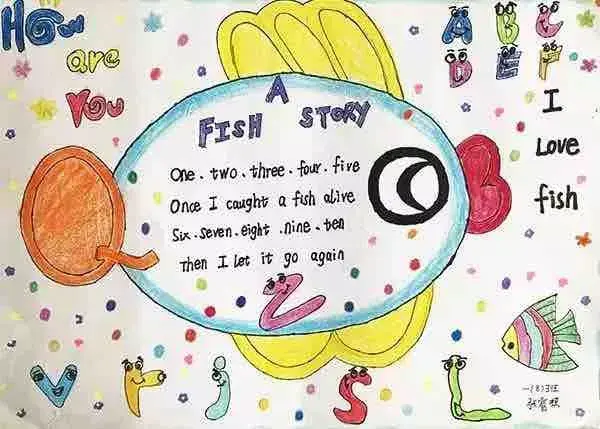 How
are
You
A B C
D E F
I
Love
fish
A
FISH STORY
One. two. three. four. five
Once I caught a fish alive
Six. seven. eight. nine. ten
Then I let it go again
Q
Z
V r i S L